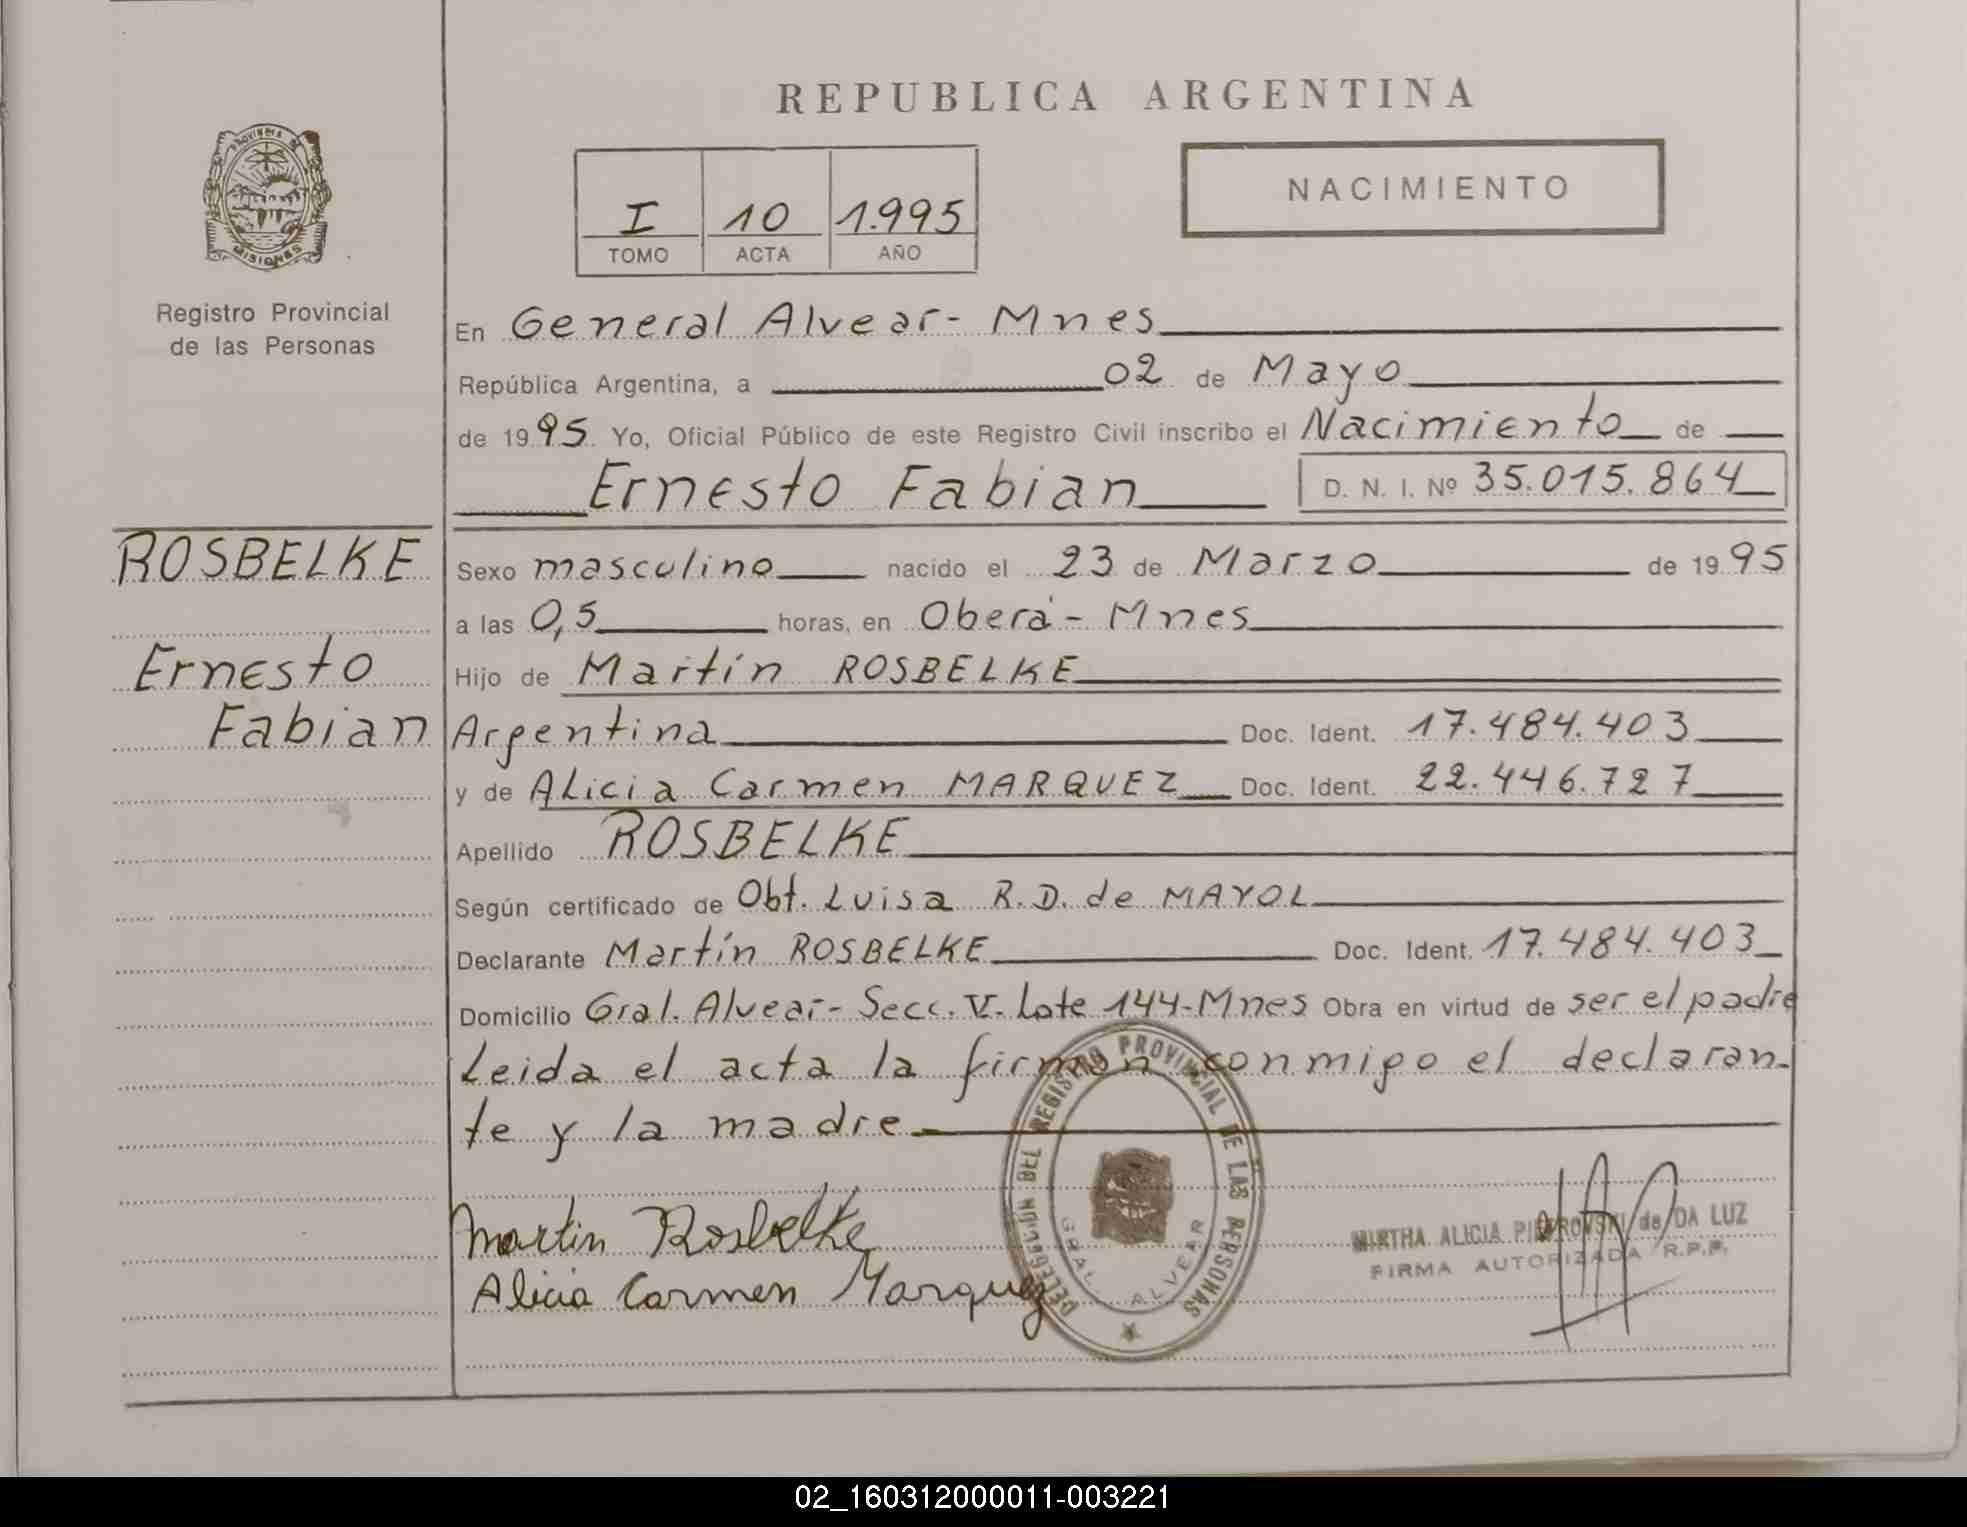 REPUBLICA ARGENTINA
PROVINCIA DE MISIONES
Registro Provincial
de las Personas
I 10 1.995
TOMO ACTA AÑO
NACIMIENTO
En General Alvear - Mnes
República Argentina, a 02 de Mayo
de 1995. Yo, Oficial Público de este Registro Civil inscribo el Nacimiento de
Ernesto Fabian D. N. I. Nº 35.015.864
ROSBELKE
Ernesto
Fabian
Sexo masculino nacido el 23 de Marzo de 1995
a las 0,5 horas, en Oberá - Mnes
Hijo de Martín ROSBELKE
Argentina Doc. Ident. 17.484.403
y de Alicia Carmen MARQUEZ Doc. Ident. 22.446.727
Apellido ROSBELKE
Según certificado de Obt. Luisa R. D. de MAYOL
Declarante Martín ROSBELKE Doc. Ident. 17.484.403
Domicilio Gral. Alvear - Secc. V. Lote 144 - Mnes Obra en virtud de ser el padre
Leida el acta la firman conmigo el declaran-
te y la madre
DELEGACIÓN DEL REGISTRO PROVINCIAL DE LAS PERSONAS
GRAL ALVEAR
Martin Rosbelke
Alicia Carmen Marquez
MIRTHA ALICIA PIETROVSKI de DA LUZ
FIRMA AUTORIZADA R.P.P.
02_160312000011-003221